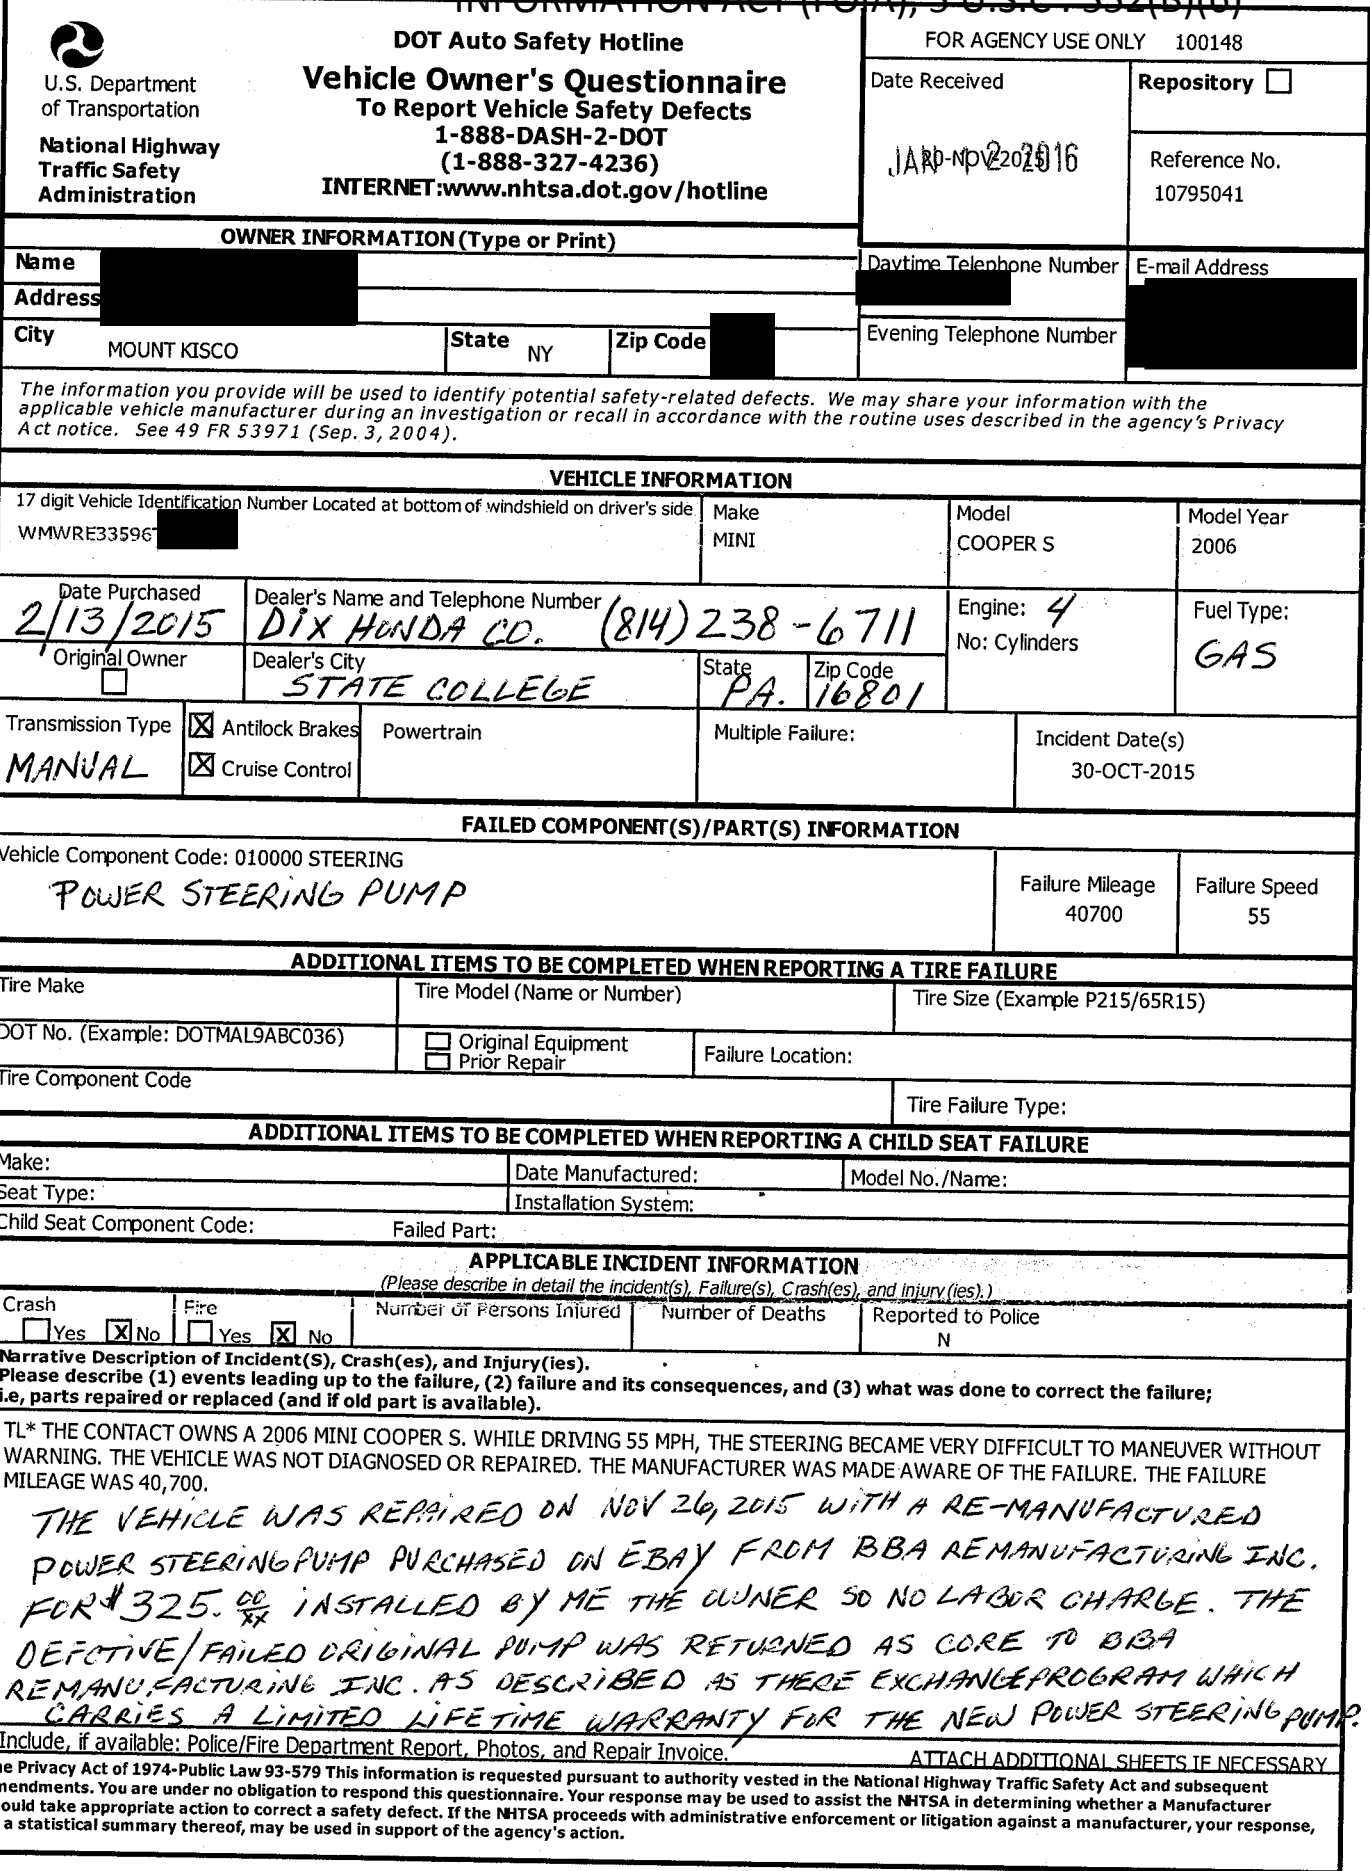 INFORMATION ACT (FOIA), 5 U.S.C. 552(B)(6)
U.S. Department
of Transportation
National Highway
Traffic Safety
Administration
DOT Auto Safety Hotline
Vehicle Owner's Questionnaire
To Report Vehicle Safety Defects
1-888-DASH-2-DOT
(1-888-327-4236)
INTERNET:www.nhtsa.dot.gov/hotline
FOR AGENCY USE ONLY 100148
Date Received
Repository
Reference No.
10795041
OWNER INFORMATION (Type or Print)
Name
Address
City
MOUNT KISCO
State NY
Zip Code
Daytime Telephone Number
E-mail Address
Evening Telephone Number
The information you provide will be used to identify potential safety-related defects. We may share your information with the
applicable vehicle manufacturer during an investigation or recall in accordance with the routine uses described in the agency's Privacy
Act notice. See 49 FR 53971 (Sep. 3, 2004).
VEHICLE INFORMATION
17 digit Vehicle Identification Number Located at bottom of windshield on driver's side
WMWRE33596
Make
MINI
Model
COOPER S
Model Year
2006
Date Purchased
2/13/2015
Dealer's Name and Telephone Number
DIX HONDA CO. (814) 238-6711
Engine: 4
No: Cylinders
Fuel Type:
GAS
Original Owner
Dealer's City
STATE COLLEGE
State
PA.
Zip Code
16801
Transmission Type
MANUAL
X Antilock Brakes
X Cruise Control
Powertrain
Multiple Failure:
Incident Date(s)
30-OCT-2015
FAILED COMPONENT(S)/PART(S) INFORMATION
Vehicle Component Code: 010000 STEERING
POWER STEERING PUMP
Failure Mileage
40700
Failure Speed
55
ADDITIONAL ITEMS TO BE COMPLETED WHEN REPORTING A TIRE FAILURE
Tire Make
Tire Model (Name or Number)
Tire Size (Example P215/65R15)
DOT No. (Example: DOTMAL9ABC036)
Original Equipment
Prior Repair
Failure Location:
Tire Component Code
Tire Failure Type:
ADDITIONAL ITEMS TO BE COMPLETED WHEN REPORTING A CHILD SEAT FAILURE
Make:
Date Manufactured:
Model No./Name:
Seat Type:
Installation System:
Child Seat Component Code:
Failed Part:
APPLICABLE INCIDENT INFORMATION
(Please describe in detail the incident(s), Failure(s), Crash(es), and injury(ies).)
Crash
Yes X No
Fire
Yes X No
Number of Persons Injured
Number of Deaths
Reported to Police
N
Narrative Description of Incident(S), Crash(es), and Injury(ies).
Please describe (1) events leading up to the failure, (2) failure and its consequences, and (3) what was done to correct the failure;
i.e, parts repaired or replaced (and if old part is available).
TL* THE CONTACT OWNS A 2006 MINI COOPER S. WHILE DRIVING 55 MPH, THE STEERING BECAME VERY DIFFICULT TO MANEUVER WITHOUT
WARNING. THE VEHICLE WAS NOT DIAGNOSED OR REPAIRED. THE MANUFACTURER WAS MADE AWARE OF THE FAILURE. THE FAILURE
MILEAGE WAS 40,700.
THE VEHICLE WAS REPAIRED ON NOV 26, 2015 WITH A RE-MANUFACTURED
POWER STEERING PUMP PURCHASED ON EBAY FROM BBA REMANUFACTURING INC.
FOR $325.00/XX INSTALLED BY ME THE OWNER SO NO LABOR CHARGE. THE
DEFCTIVE/FAILED ORIGINAL PUMP WAS RETURNED AS CORE TO BBA
REMANUFACTURING INC. AS DESCRIBED AS THERE EXCHANGE PROGRAM WHICH
CARRIES A LIMITED LIFETIME WARRANTY FOR THE NEW POWER STEERING PUMP.
Include, if available: Police/Fire Department Report, Photos, and Repair Invoice.
ATTACH ADDITIONAL SHEETS IF NECESSARY
e Privacy Act of 1974-Public Law 93-579 This information is requested pursuant to authority vested in the National Highway Traffic Safety Act and subsequent
mendments. You are under no obligation to respond this questionnaire. Your response may be used to assist the NHTSA in determining whether a Manufacturer
ould take appropriate action to correct a safety defect. If the NHTSA proceeds with administrative enforcement or litigation against a manufacturer, your response,
a statistical summary thereof, may be used in support of the agency's action.